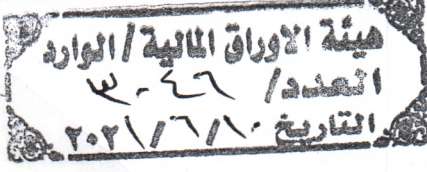 هيئة الاوراق المالية / الوارد
العدد/ ٣٠٤٦
التاريخ ٢٠٢١/٦/١٠